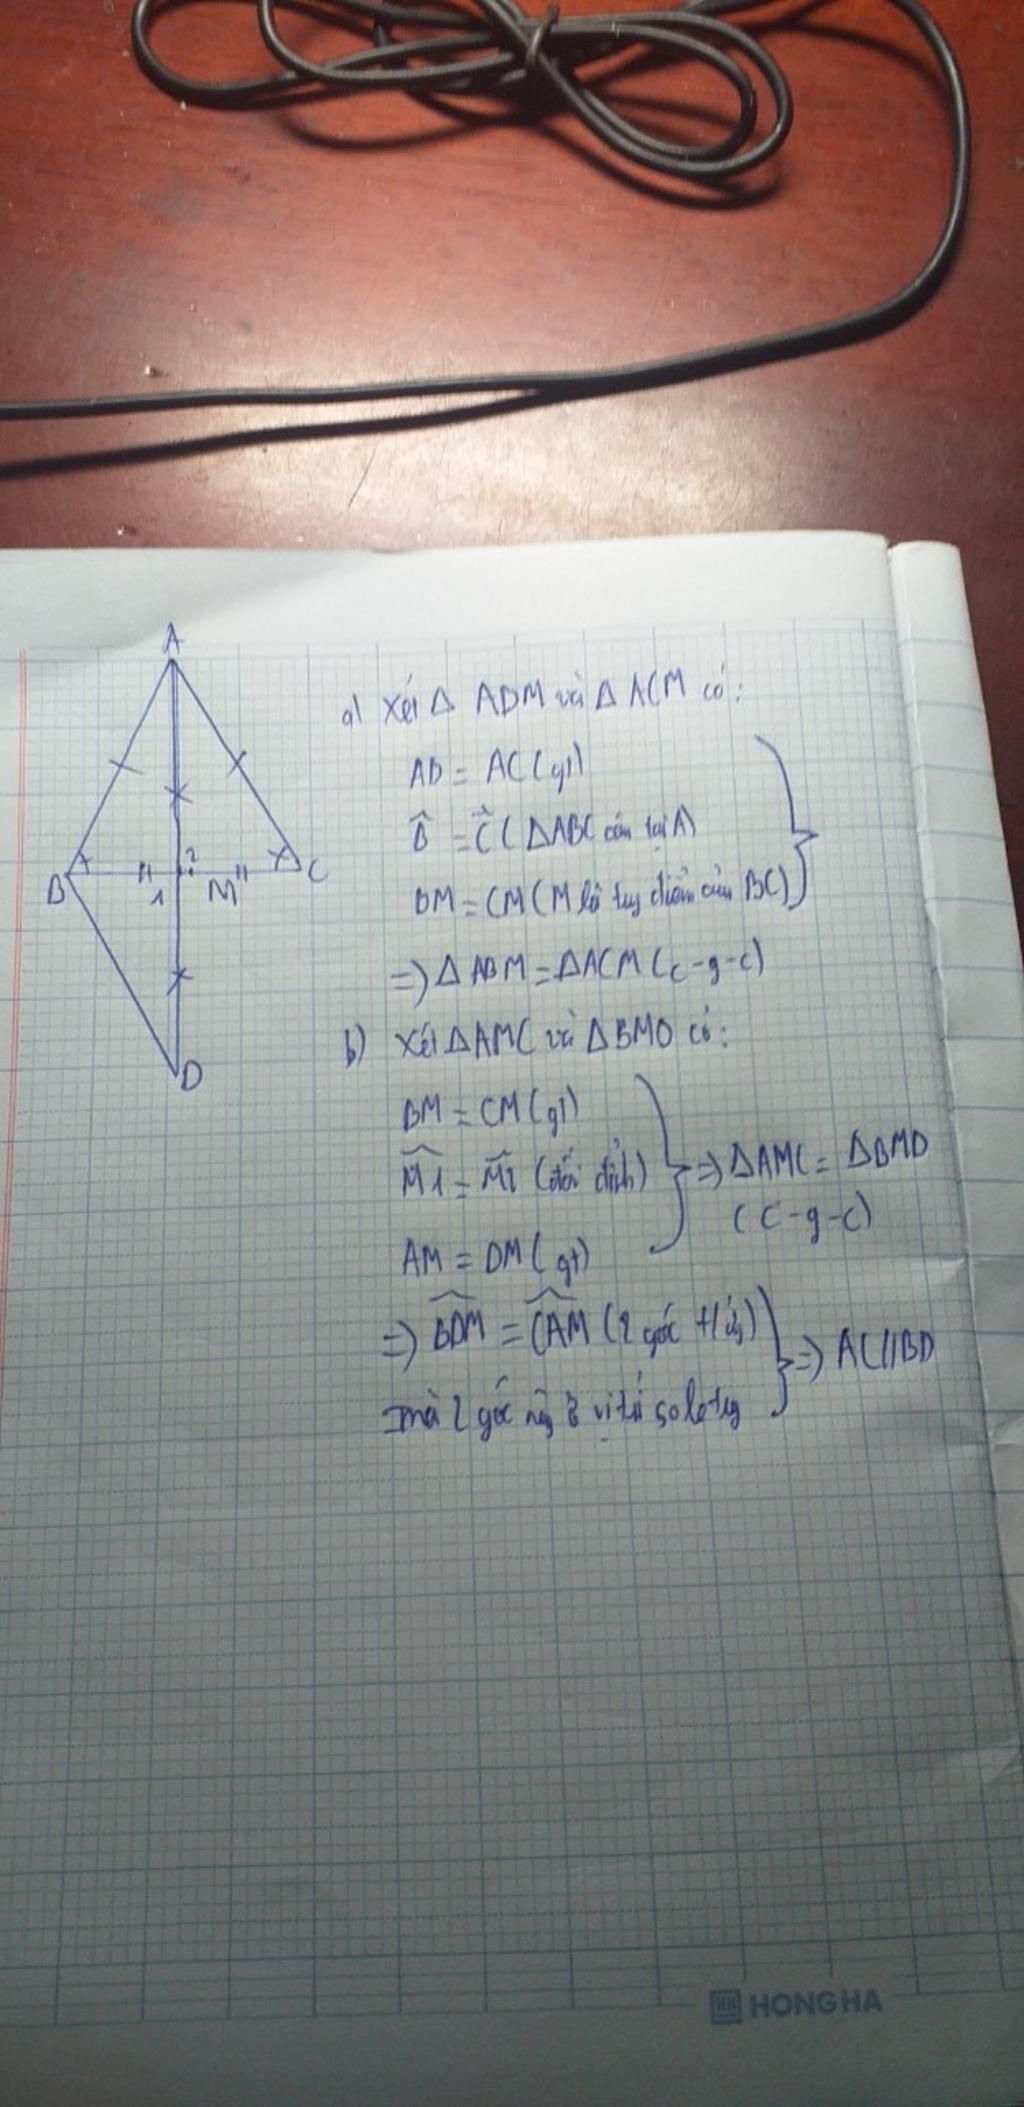 A
B
1
2
M
C
D
a) Xét Δ ABM và Δ ACM có:
AB = AC (gt)
B̂ = Ĉ (ΔABC cân tại A)
BM = CM (M là trg điểm của BC)
=> Δ ABM = ΔACM (c-g-c)
b) Xét ΔAMC và ΔBMD có:
BM = CM (gt)
M1 = M2 (đối đỉnh)
=> ΔAMC = ΔBMD
(c-g-c)
AM = DM (gt)
=> BDM = CAM (2 góc t/ứg)
=> AC//BD
mà 2 góc này ở vị trí so le trg
HONG HA